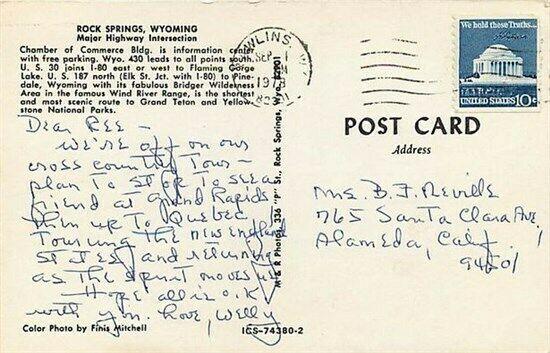 ROCK SPRINGS, WYOMING
Major Highway Intersection
Chamber of Commerce Bldg. is information center
with free parking. Wyo. 430 leads to all points south.
U. S. 30 joins I-80 east or west to Flaming Gorge
Lake. U. S. 187 north (Elk St. Jct. with I-80) to Pine-
dale, Wyoming with its fabulous Bridger Wilderness
Area in the famous Wind River Range, is the shortest
and most scenic route to Grand Teton and Yellow-
stone National Parks.
Dear Ree —
We're off on our
cross country Tour —
plan to stop to see a
friend at Grand Rapids
then up to Quebec
Touring the new england
states and returning
as the spirit moves us
— Hope all is o.k.
with you. Love, Welly
Color Photo by Finis Mitchell
ICS-74380-2
M & R Photos, 336 "P" St., Rock Springs, Wyo. 82901
WLINS, W
SEP 1
We hold these Truths...
UNITED STATES 10c
POST CARD
Address
Mrs. B. F. Neville
765 Santa Clara Ave.
Alameda, Calif.
94501